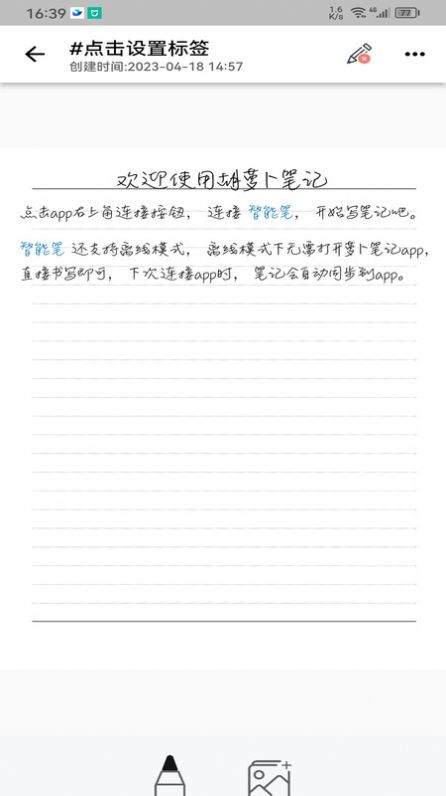 16:39
1.6 K/s
4G
77
#点击设置标签
创建时间:2023-04-18 14:57
欢迎使用胡萝卜笔记
点击app右上角连接按钮，连接 智能笔，开始写笔记吧。
智能笔 还支持离线模式，离线模式下无需打开萝卜笔记app，
直接书写即可，下次连接app时，笔记会自动同步到app。